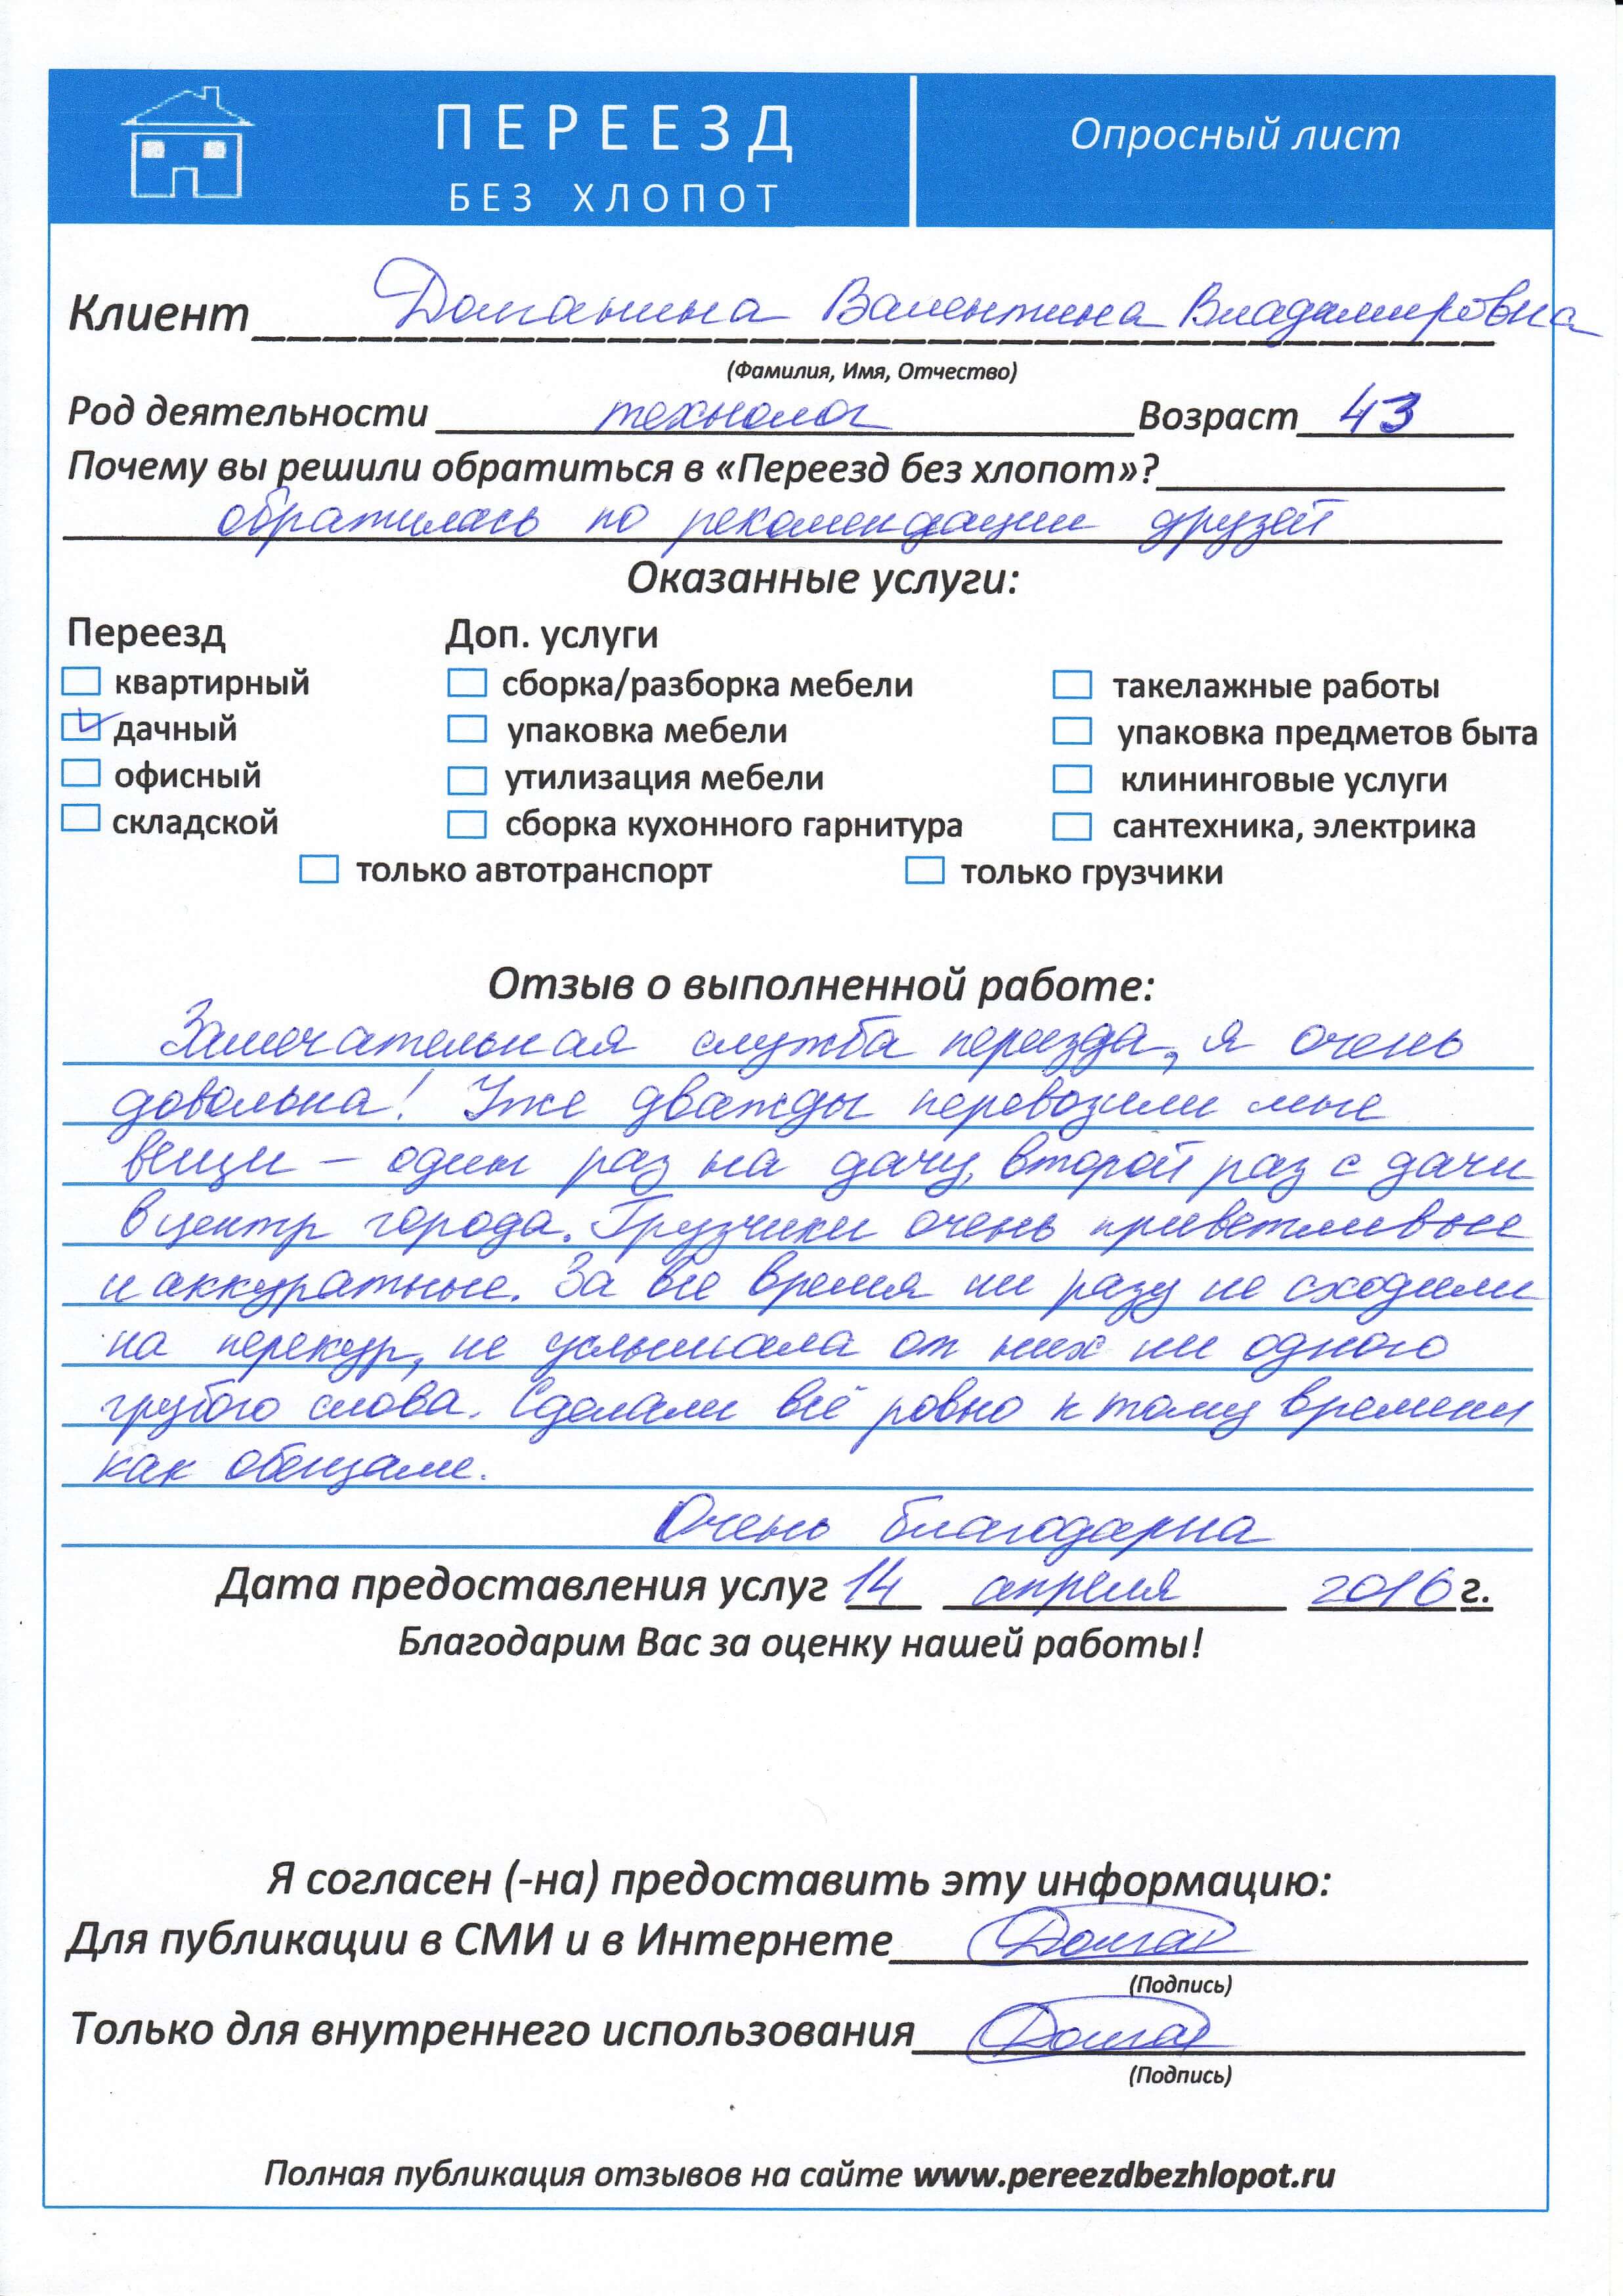 ПЕРЕЕЗД
БЕЗ ХЛОПОТ
Опросный лист
Клиент Доманина Валентина Владимировна
(Фамилия, Имя, Отчество)
Род деятельности технолог Возраст 43
Почему вы решили обратиться в «Переезд без хлопот»?
обратилась по рекомендации друзей
Оказанные услуги:
Переезд Доп. услуги
квартирный сборка/разборка мебели такелажные работы
дачный упаковка мебели упаковка предметов быта
офисный утилизация мебели клининговые услуги
складской сборка кухонного гарнитура сантехника, электрика
только автотранспорт только грузчики
Отзыв о выполненной работе:
Замечательная служба переезда, я очень
довольна! Уже дважды перевозили мне
вещи – один раз на дачу, второй раз с дачи
в центр города. Грузчики очень приветливые
и аккуратные. За все время ни разу не сходили
на перекур, не услышала от них ни одного
грубого слова. Сделали всё ровно к тому времени
как обещали.
Очень благодарна
Дата предоставления услуг 14 апреля 2016 г.
Благодарим Вас за оценку нашей работы!
Я согласен (-на) предоставить эту информацию:
Для публикации в СМИ и в Интернете
(Подпись)
Только для внутреннего использования
(Подпись)
Полная публикация отзывов на сайте www.pereezdbezhlopot.ru